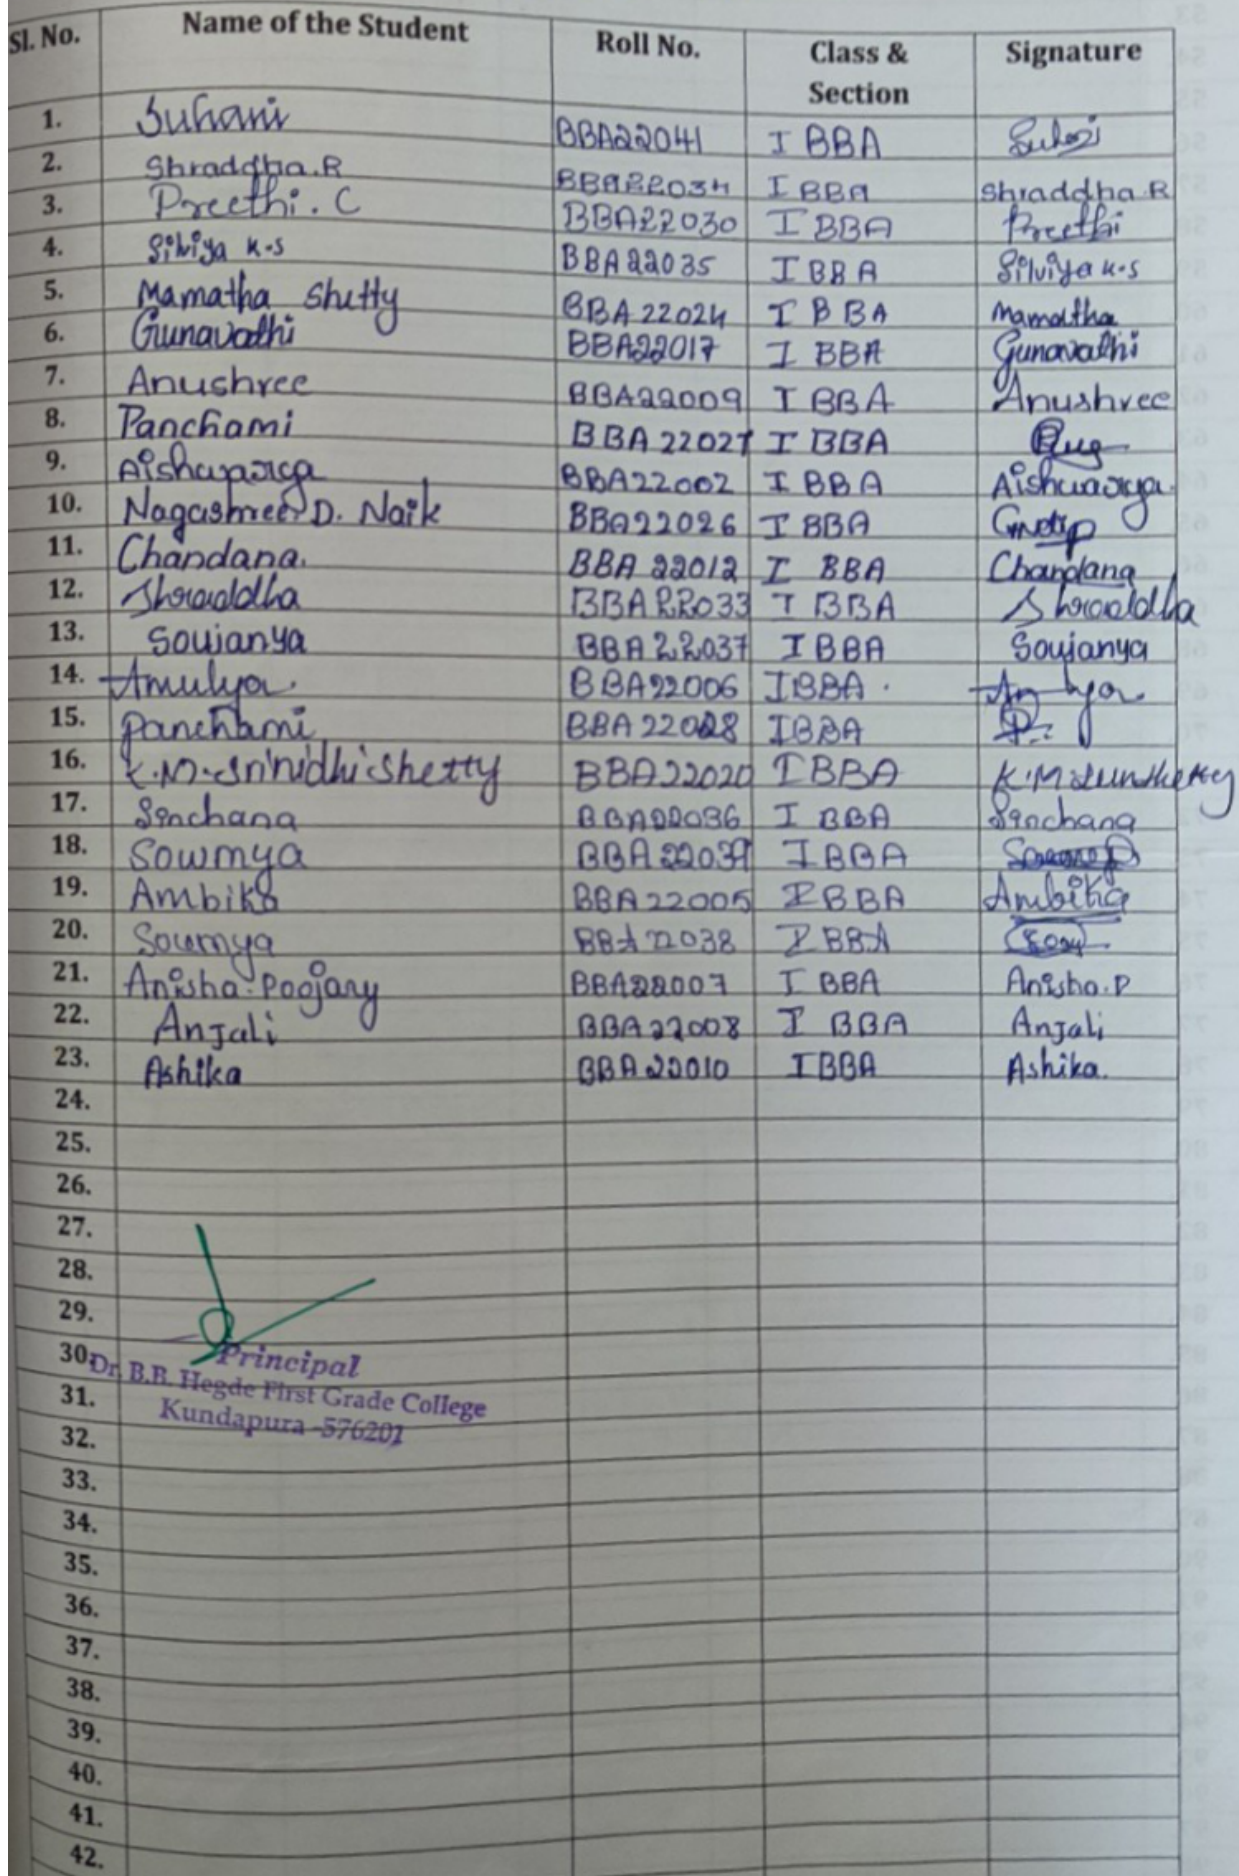 Sl. No. Name of the Student Roll No. Class & Section Signature
1. Suhani BBA22041 I BBA
2. Shraddha.R BBA22034 I BBA Shraddha.R
3. Preethi. C BBA22030 I BBA Preethi
4. Silviya K.S BBA22035 I BBA Silviya K.S
5. Mamatha Shetty BBA22024 I BBA Mamatha
6. Gunavathi BBA22017 I BBA Gunavathi
7. Anushree BBA22009 I BBA Anushree
8. Panchami BBA22027 I BBA
9. Aishwarya BBA22002 I BBA Aishwarya
10. Nagashree D. Naik BBA22026 I BBA
11. Chandana. BBA22012 I BBA Chandana
12. Shraddha BBA22033 I BBA Shraddha
13. Soujanya BBA22037 I BBA Soujanya
14. Amulya. BBA22006 I BBA.
15. Panchami BBA22028 I BBA
16. K.M. Srinidhi Shetty BBA22020 I BBA
17. Sinchana BBA22036 I BBA Sinchana
18. Sowmya BBA22039 I BBA
19. Ambika BBA22005 I BBA Ambika
20. Soumya BBA22038 I BBA
21. Anisha Poojary BBA22007 I BBA Anisha.P
22. Anjali BBA22008 I BBA Anjali
23. Ashika BBA22010 I BBA Ashika.
24.
25.
26.
27.
28.
29.
30. Principal
Dr. B.B. Hegde First Grade College
31. Kundapura -576201
32.
33.
34.
35.
36.
37.
38.
39.
40.
41.
42.